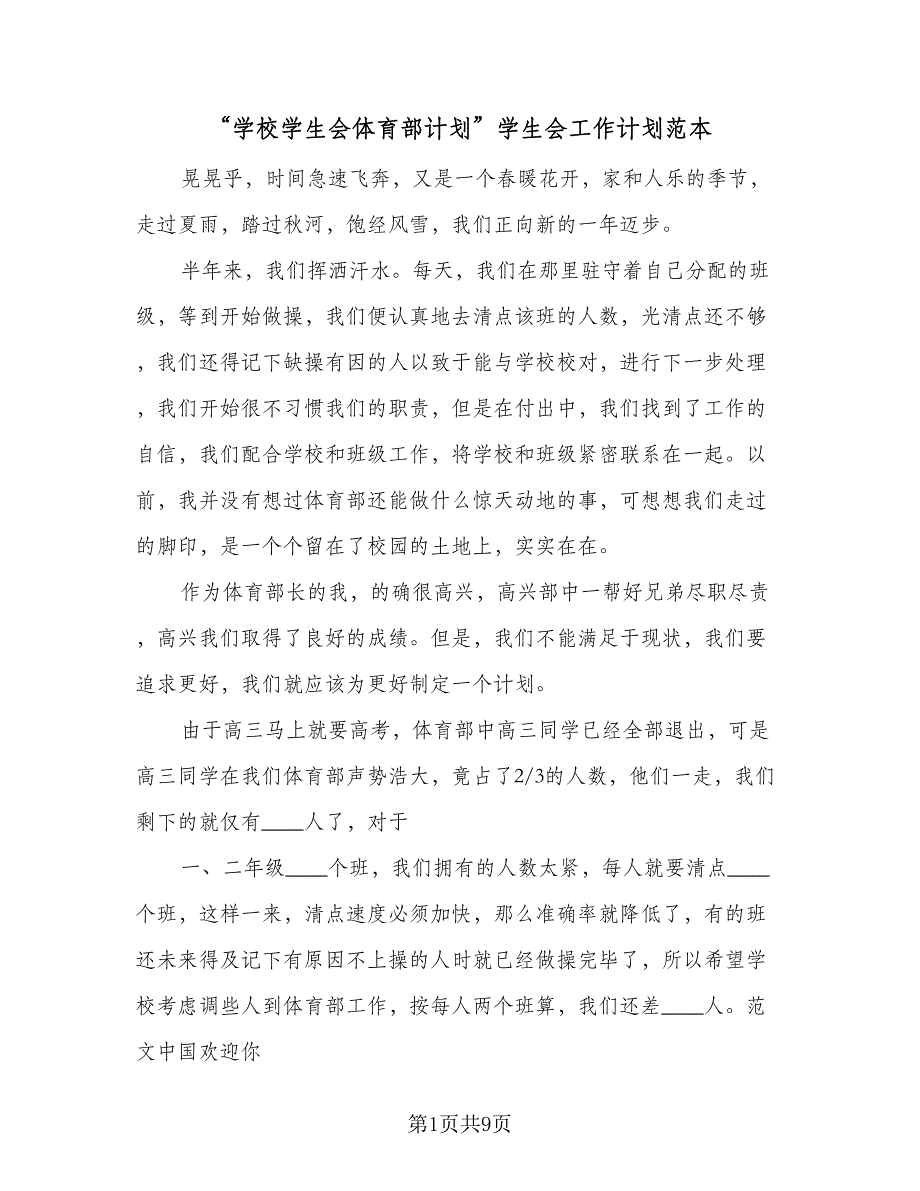 “学校学生会体育部计划”学生会工作计划范本
晃晃乎，时间急速飞奔，又是一个春暖花开，家和人乐的季节，
走过夏雨，踏过秋河，饱经风雪，我们正向新的一年迈步。
半年来，我们挥洒汗水。每天，我们在那里驻守着自己分配的班
级，等到开始做操，我们便认真地去清点该班的人数，光清点还不够
，我们还得记下缺操有因的人以致于能与学校校对，进行下一步处理
，我们开始很不习惯我们的职责，但是在付出中，我们找到了工作的
自信，我们配合学校和班级工作，将学校和班级紧密联系在一起。以
前，我并没有想过体育部还能做什么惊天动地的事，可想想我们走过
的脚印，是一个个留在了校园的土地上，实实在在。
作为体育部长的我，的确很高兴，高兴部中一帮好兄弟尽职尽责
，高兴我们取得了良好的成绩。但是，我们不能满足于现状，我们要
追求更好，我们就应该为更好制定一个计划。
由于高三马上就要高考，体育部中高三同学已经全部退出，可是
高三同学在我们体育部声势浩大，竟占了2/3的人数，他们一走，我们
剩下的就仅有____人了，对于
一、二年级____个班，我们拥有的人数太紧，每人就要清点____
个班，这样一来，清点速度必须加快，那么准确率就降低了，有的班
还未来得及记下有原因不上操的人时就已经做操完毕了，所以希望学
校考虑调些人到体育部工作，按每人两个班算，我们还差____人。范
文中国欢迎你
第1页共9页